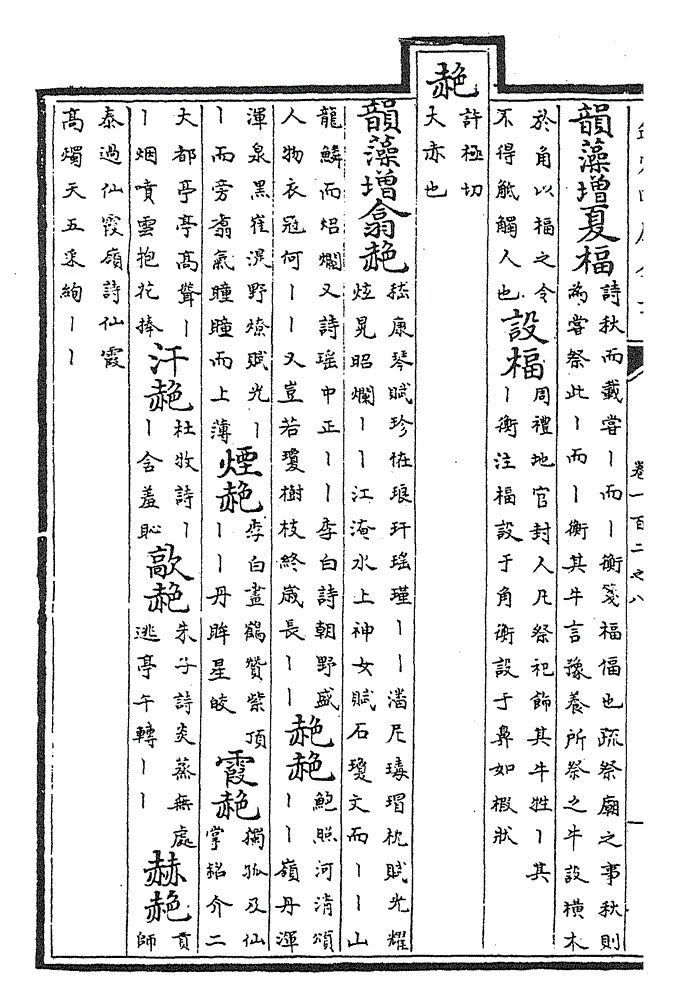 卷一百二之八
韻藻增夏楅
詩秋而載嘗丨而丨衡箋楅偪也疏祭廟之事秋則
為嘗祭此丨而丨衡其牛言豫養所祭之牛設橫木
於角以楅之令
不得觝觸人也
設楅
周禮地官封人凡祭祀飾其牛牲丨其
丨衡注楅設于角衡設于鼻如椵狀
赩
許極切
大赤也
韻藻增翕赩
嵇康琴賦珍怪琅玕瑤瑾丨丨潘尼瑇瑁枕賦光耀
炫晃昭爛丨丨江淹水上神女賦石瓊文而丨丨山
龍鱗而炤爛又詩瑤中正丨丨李白詩朝野盛
人物衣冠何丨丨又豈若瓊樹枝終歲長丨丨
赩赩
鮑照河清頌
丨丨嶺丹渾
渾泉黑崔湜野燎賦光丨
丨而旁翥氣曈曈而上薄
煙赩
李白畫鶴贊紫頂
丨丨丹眸星皎
霞赩
獨孤及仙
掌銘介二
大都亭亭高聳丨
丨烟噴雲抱花捧
汗赩
杜牧詩丨
丨含羞恥
歊赩
朱子詩炎蒸無處
逃亭午轉丨丨
赫赩
貢
師
泰過仙霞嶺詩仙霞
高燭天五采絢丨丨